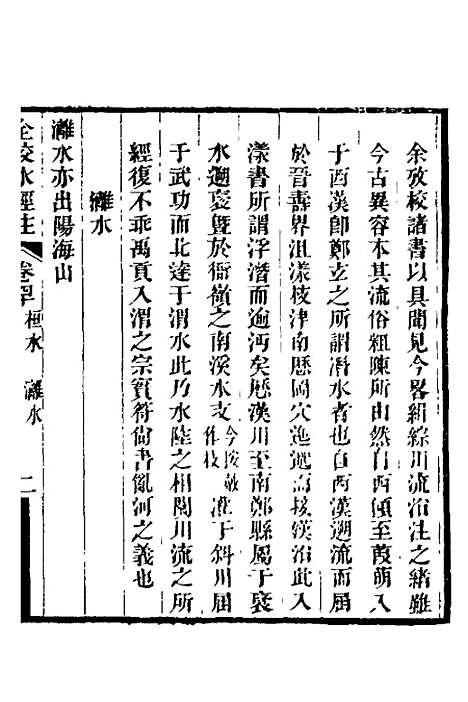 余攷校諸書以具聞見今畧緝綜川流沿注之緒雖
今古異容本其流俗粗陳所由然自西傾至葭萌入
于西漢卽鄭玄之所謂潛水者也自西漢遡流而屆
於晉壽界沮漾枝津南歷岡穴迤邐而接漢沿此入
漾書所謂浮潛而逾沔矣歷漢川至南鄭縣屬于襃
水遡襃暨於衙嶺之南溪水支今按嶽作枝灌于斜川屆
于武功而北達于渭水此乃水陸之相關川流之所
經復不乖禹貢入渭之宗實符尙書亂河之義也
灕水
灕水亦出陽海山
全校水經注 卷 桓水 灕水 二